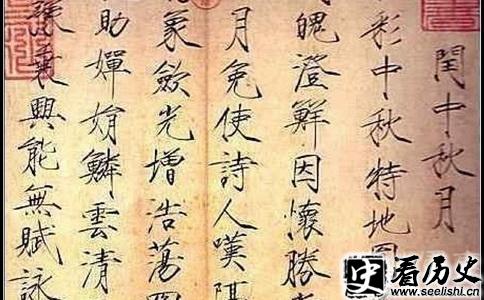 閏中秋月
彩中秋特地圓
魄澄鮮因懷勝
月免使詩人嘆隔
象斂光增浩蕩
助嬋娟鱗雲清
興能無賦詠
史 看历史
www.seelishi.cn